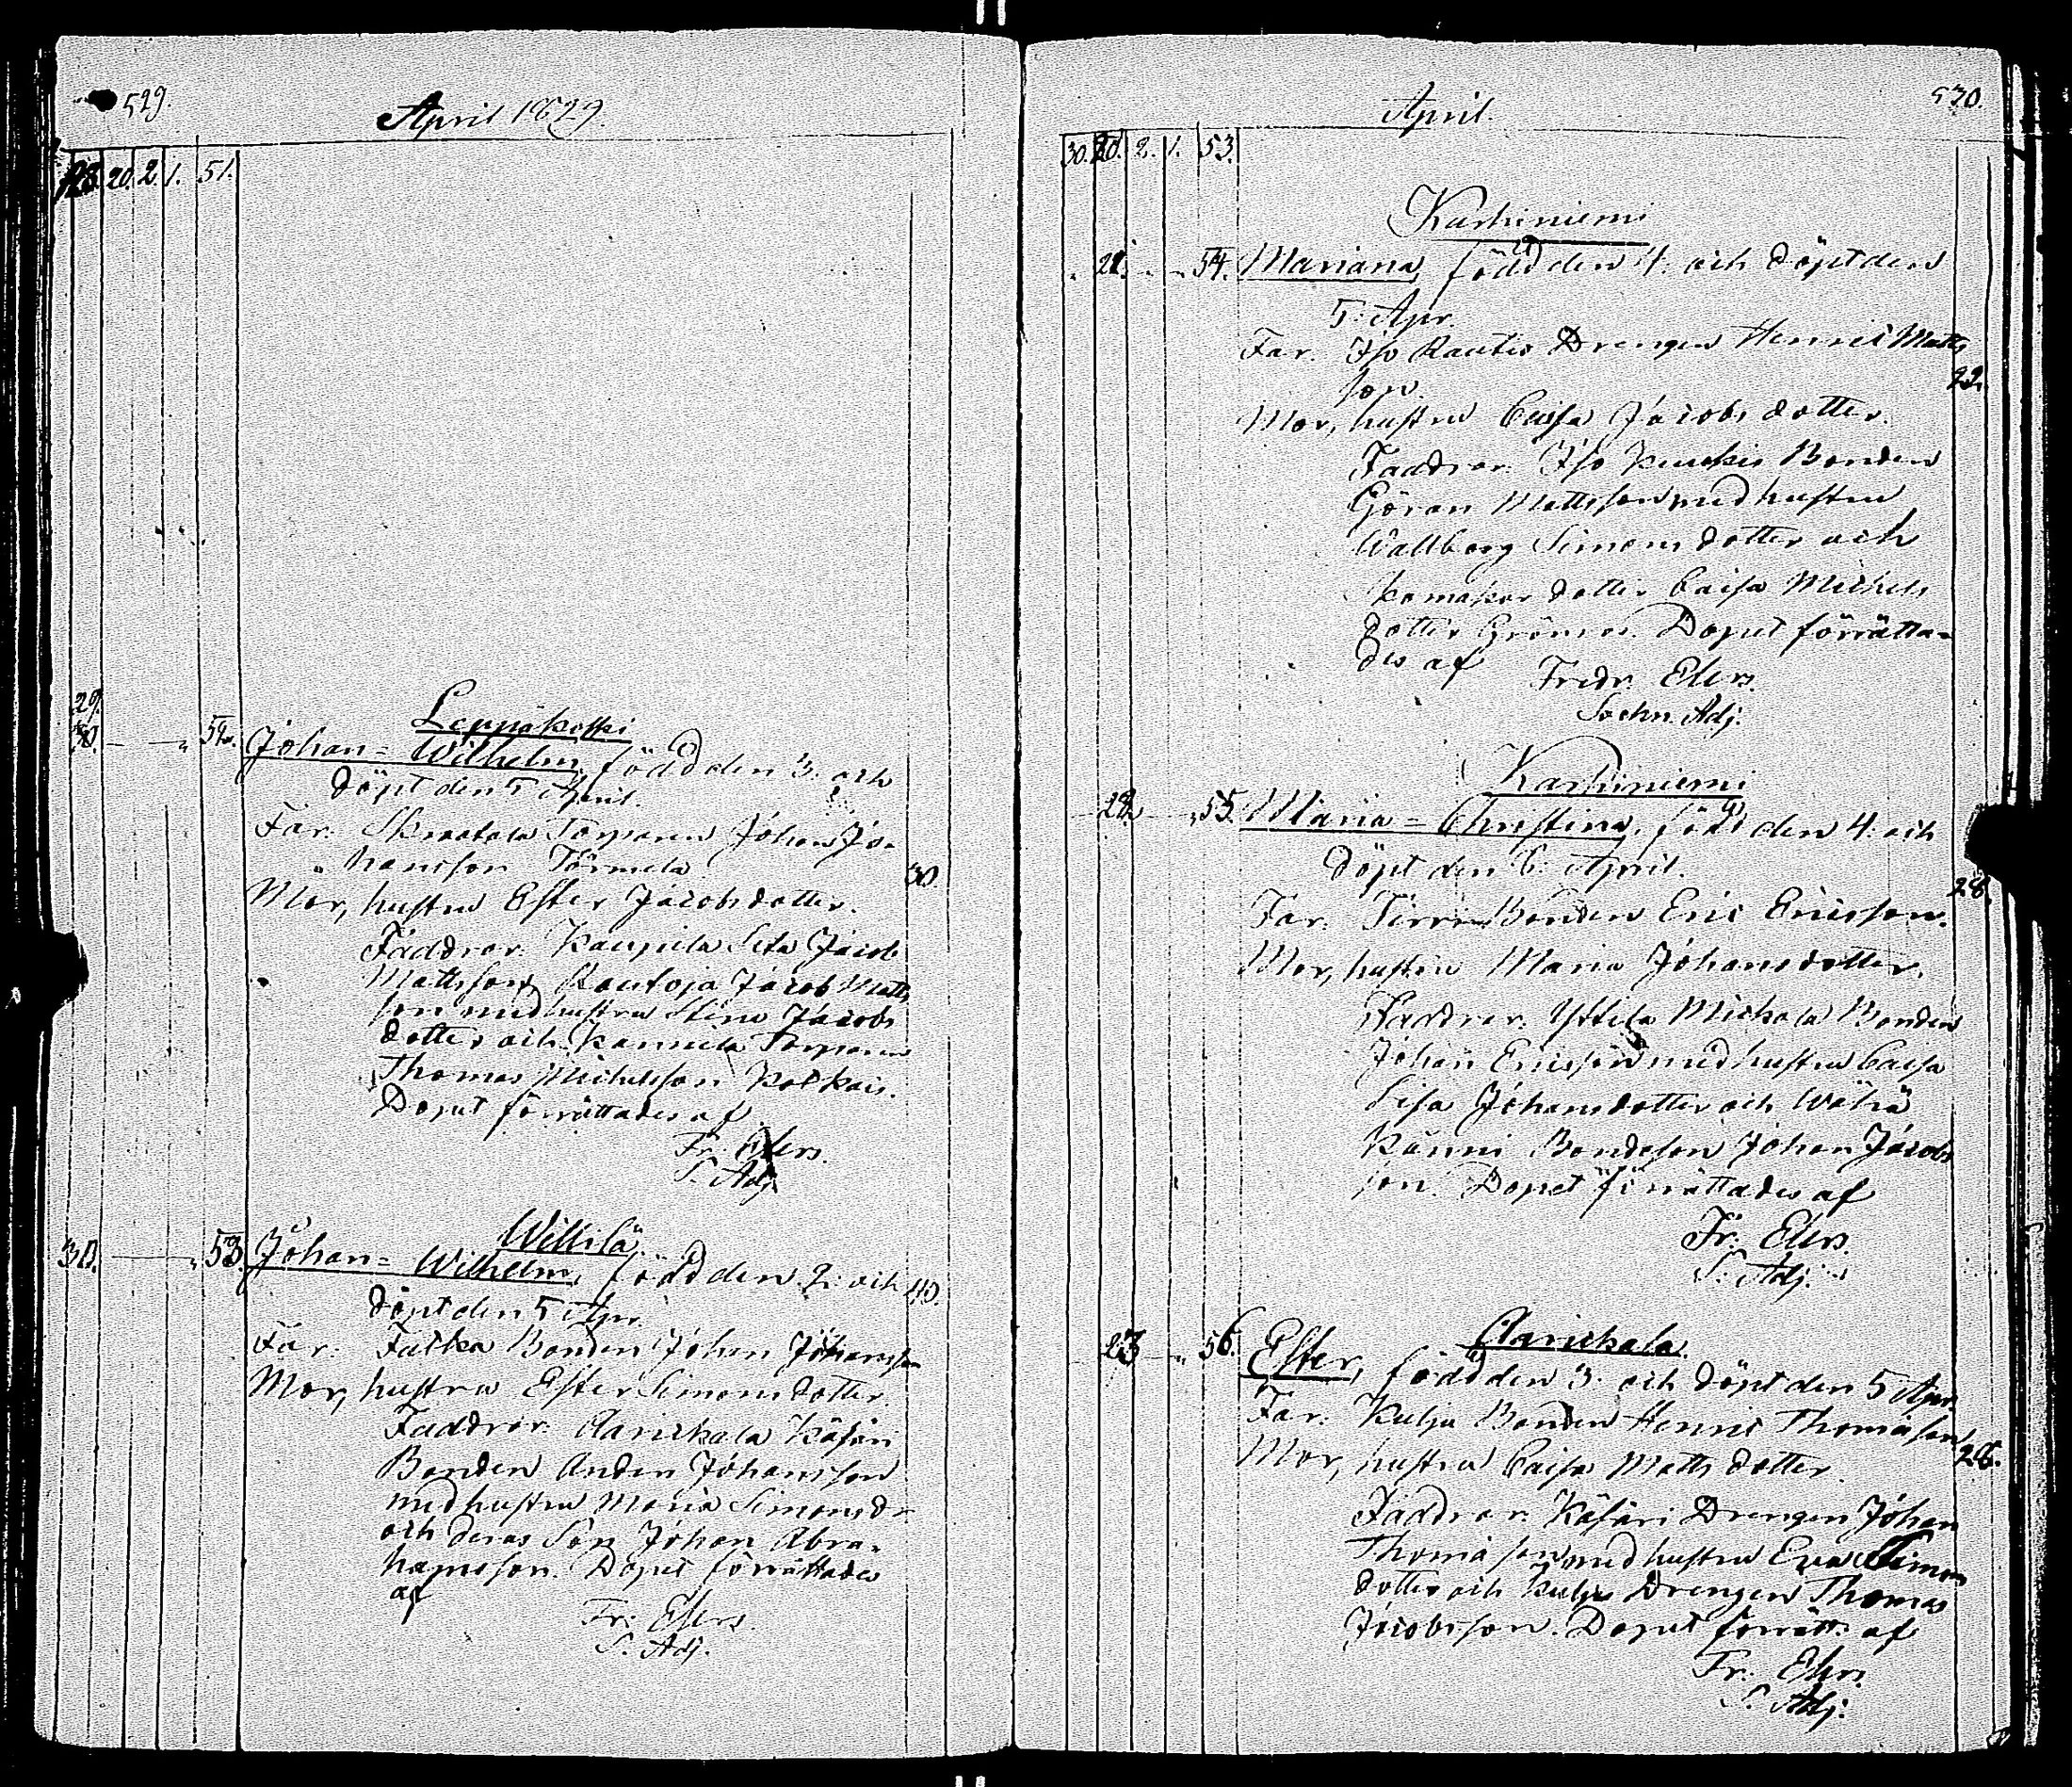 529.
April 1829.
28. 20. 2. 1. 51.
Leppäkoski
29.
30. 52. Johan=Wilhelm, född den 3. och
döpt den 5 April.
Far. Torparen Johan Jo-
hansson Törmelä 30.
Mor, hustru Ester Jacobsdotter.
Faddrar. Kaupila Jacob
Mattsson, Rautoja Jacob Matts
son med hustru Stina Jacobs
dotter och Torparen
Thomas Michelsson
Dopet förrättades af
Fr. Elers.
S. Adj.
Willilä
30. 53. Johan=Wilhelm, född den 2. och 40.
döpt den 5 Apr.
Far. Bonden Johan Johansson
Mor, hustru Ester Simonsdotter.
Faddrar. Anickala Käfäri
Bonden Johansson
med hustru Maria Simonsdr
och deras Son Johan Abra-
hamsson. Dopet förrättades
af
Fr. Elers.
S. Adj.
April. 530.
30. 20. 2. 1. 53.
Karhiniemi
21. 54. Mariana, född den 4. och döpt den
5. Apr.
Far. Iso Rautio Drengen Henric Matts
son. 22.
Mor, hustru Caisa Jacobsdotter.
Faddrar. Iso Bonden
Göran Mattsson med hustru
Wallborg Simonsdotter och
dotter Caisa Michels
dotter Grönroos. Dopet förrätta-
des af
Fredr. Elers.
Sockn. Adj.
Karhiniemi
22. 55. Maria=Christina, född den 4. och
döpt den 6. April.
28.
Far. Bonden Eric Ericsson.
Mor, hustru Maria Johansdotter.
Faddrar. Yttilä Mickola Bonden
Johan Ericsson med hustru Caisa
Lisa Johansdotter och Wähä
Känni Bondeson Johan Jacobs
son. Dopet förrättades af
Fr. Elers.
S. Adj.
Anickala.
23 56. Ester, född den 3. och döpt den 5 Apr.
Far. Kulju Bonden Henric Thomasson
Mor, hustru Caisa Mattsdotter.
Faddrar. Käfäri Drengen Johan
Thomasson med hustru Eva Simons
dotter och Kulju Drengen Thomas
Jacobsson. Dopet förrätts af
Fr. Elers.
S. Adj.